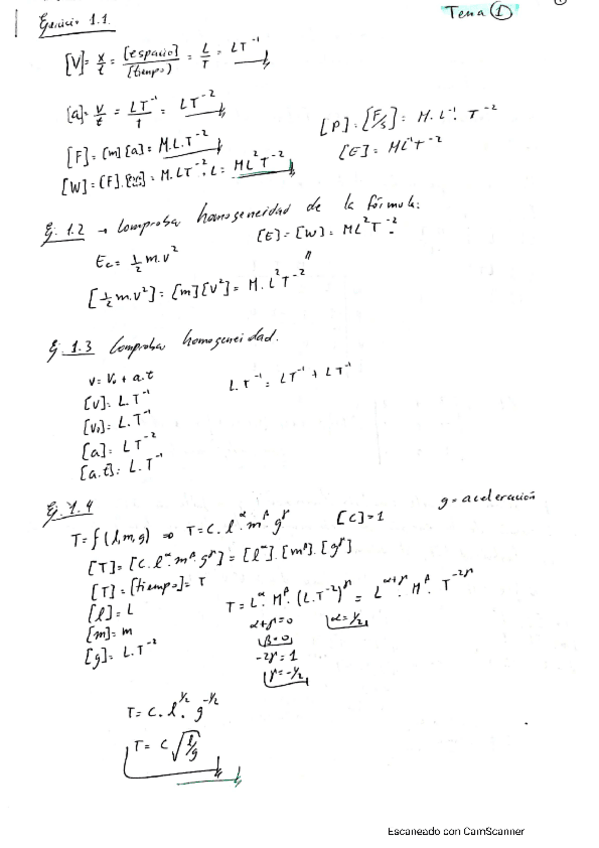 Tema ①
Ejercicio 1.1.
[V]= x/t = [espacio]/[tiempo] = L/T = LT⁻¹
[a]= v/t = LT⁻¹/1 = LT⁻²
[F]=[m][a]= M.L.T⁻²
[P]=[F/S]= M.L⁻¹. T⁻²
[E]= ML⁻¹T⁻²
[W]=[F].= M.LT⁻².L= ML²T⁻²
Ej. 1.2 → Comprobar homogeneidad de la fórmula:
Ec= ½ m.v²
[E]=[W]= ML²T⁻²
"
[½ m.v²]=[m][v²]= M.L²T⁻²
Ej 1.3 Comprobar homogeneidad.
v= V₀ + a.t
L.T⁻¹= LT⁻¹ + LT⁻¹
[v]= L.T⁻¹
[v₀]= L.T⁻¹
[a]= LT⁻²
[a.t]= L.T⁻¹
Ej. 1.4
g= aceleración
T=f(l,m,g) ⇒ T=C.l^α.m^β.g^γ [C]=1
[T]=[C.l^α.m^β.g^γ]=[l^α].[m^β].[g^γ]
[T]=[tiempo]= T
[l]=L
[m]=m
[g]= L.T⁻²
T=L^α.M^β.(L.T⁻²)^γ= L^(α+γ).M^β.T^(-2γ)
α+γ=0 α=1/2
β=0
-2γ=1
γ=-1/2
T= C.l^(1/2).g^(-1/2)
T= C√(l/g)
Escaneado con CamScanner